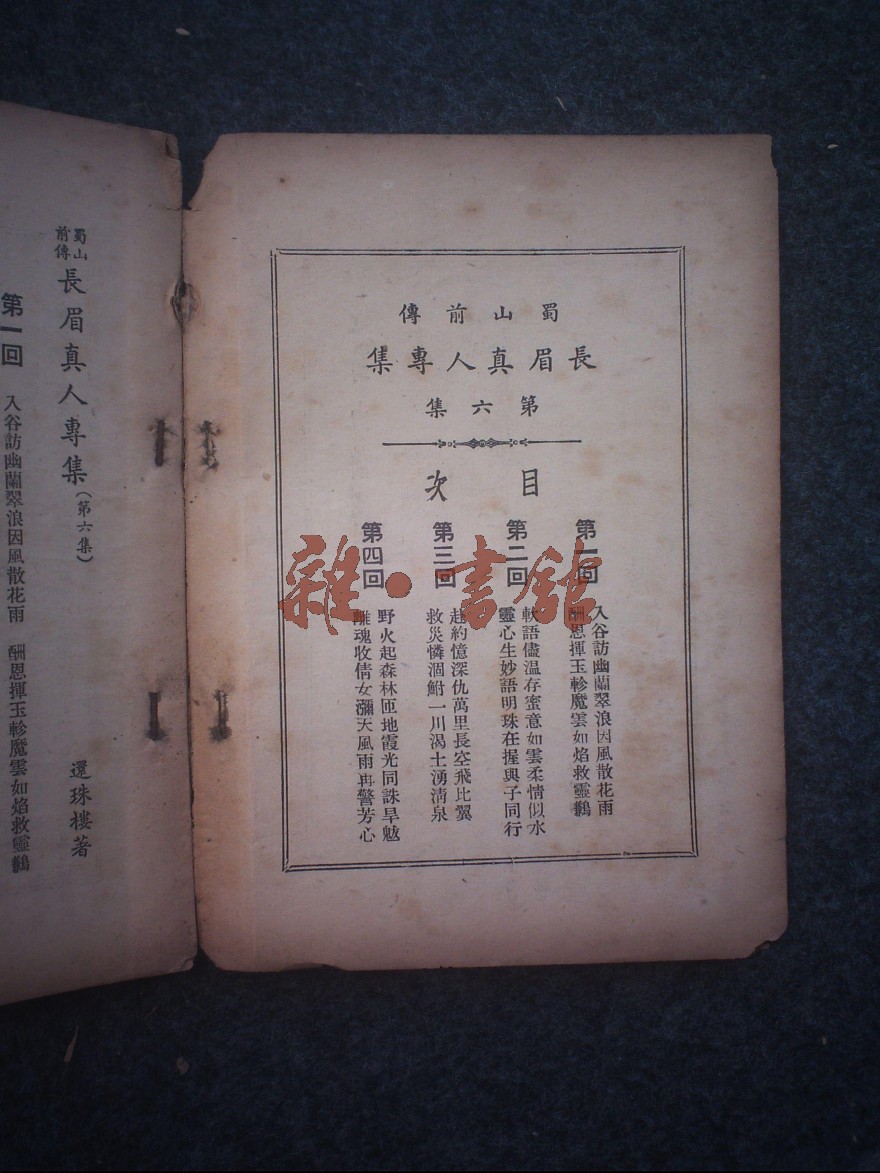 蜀山前傳
長眉真人專集
第六集
目次
第一回
入谷訪幽蘭翠浪因風散花雨
酬恩揮玉軫魔雲如焰救靈鶼
第二回
軟語儘温存蜜意如雲柔情似水
靈心生妙語明珠在握與子同行
第三回
赴約憶深仇萬里長空飛比翼
救災憐涸鮒一川渴土湧清泉
第四回
野火起森林匝地霞光同誅旱魃
離魂收倩女瀰天風雨再警芳心
蜀山前傳 長眉真人專集（第六集）
還珠樓著
第一回 入谷訪幽蘭翠浪因風散花雨 酬恩揮玉軫魔雲如焰救靈鶼
雜·書館